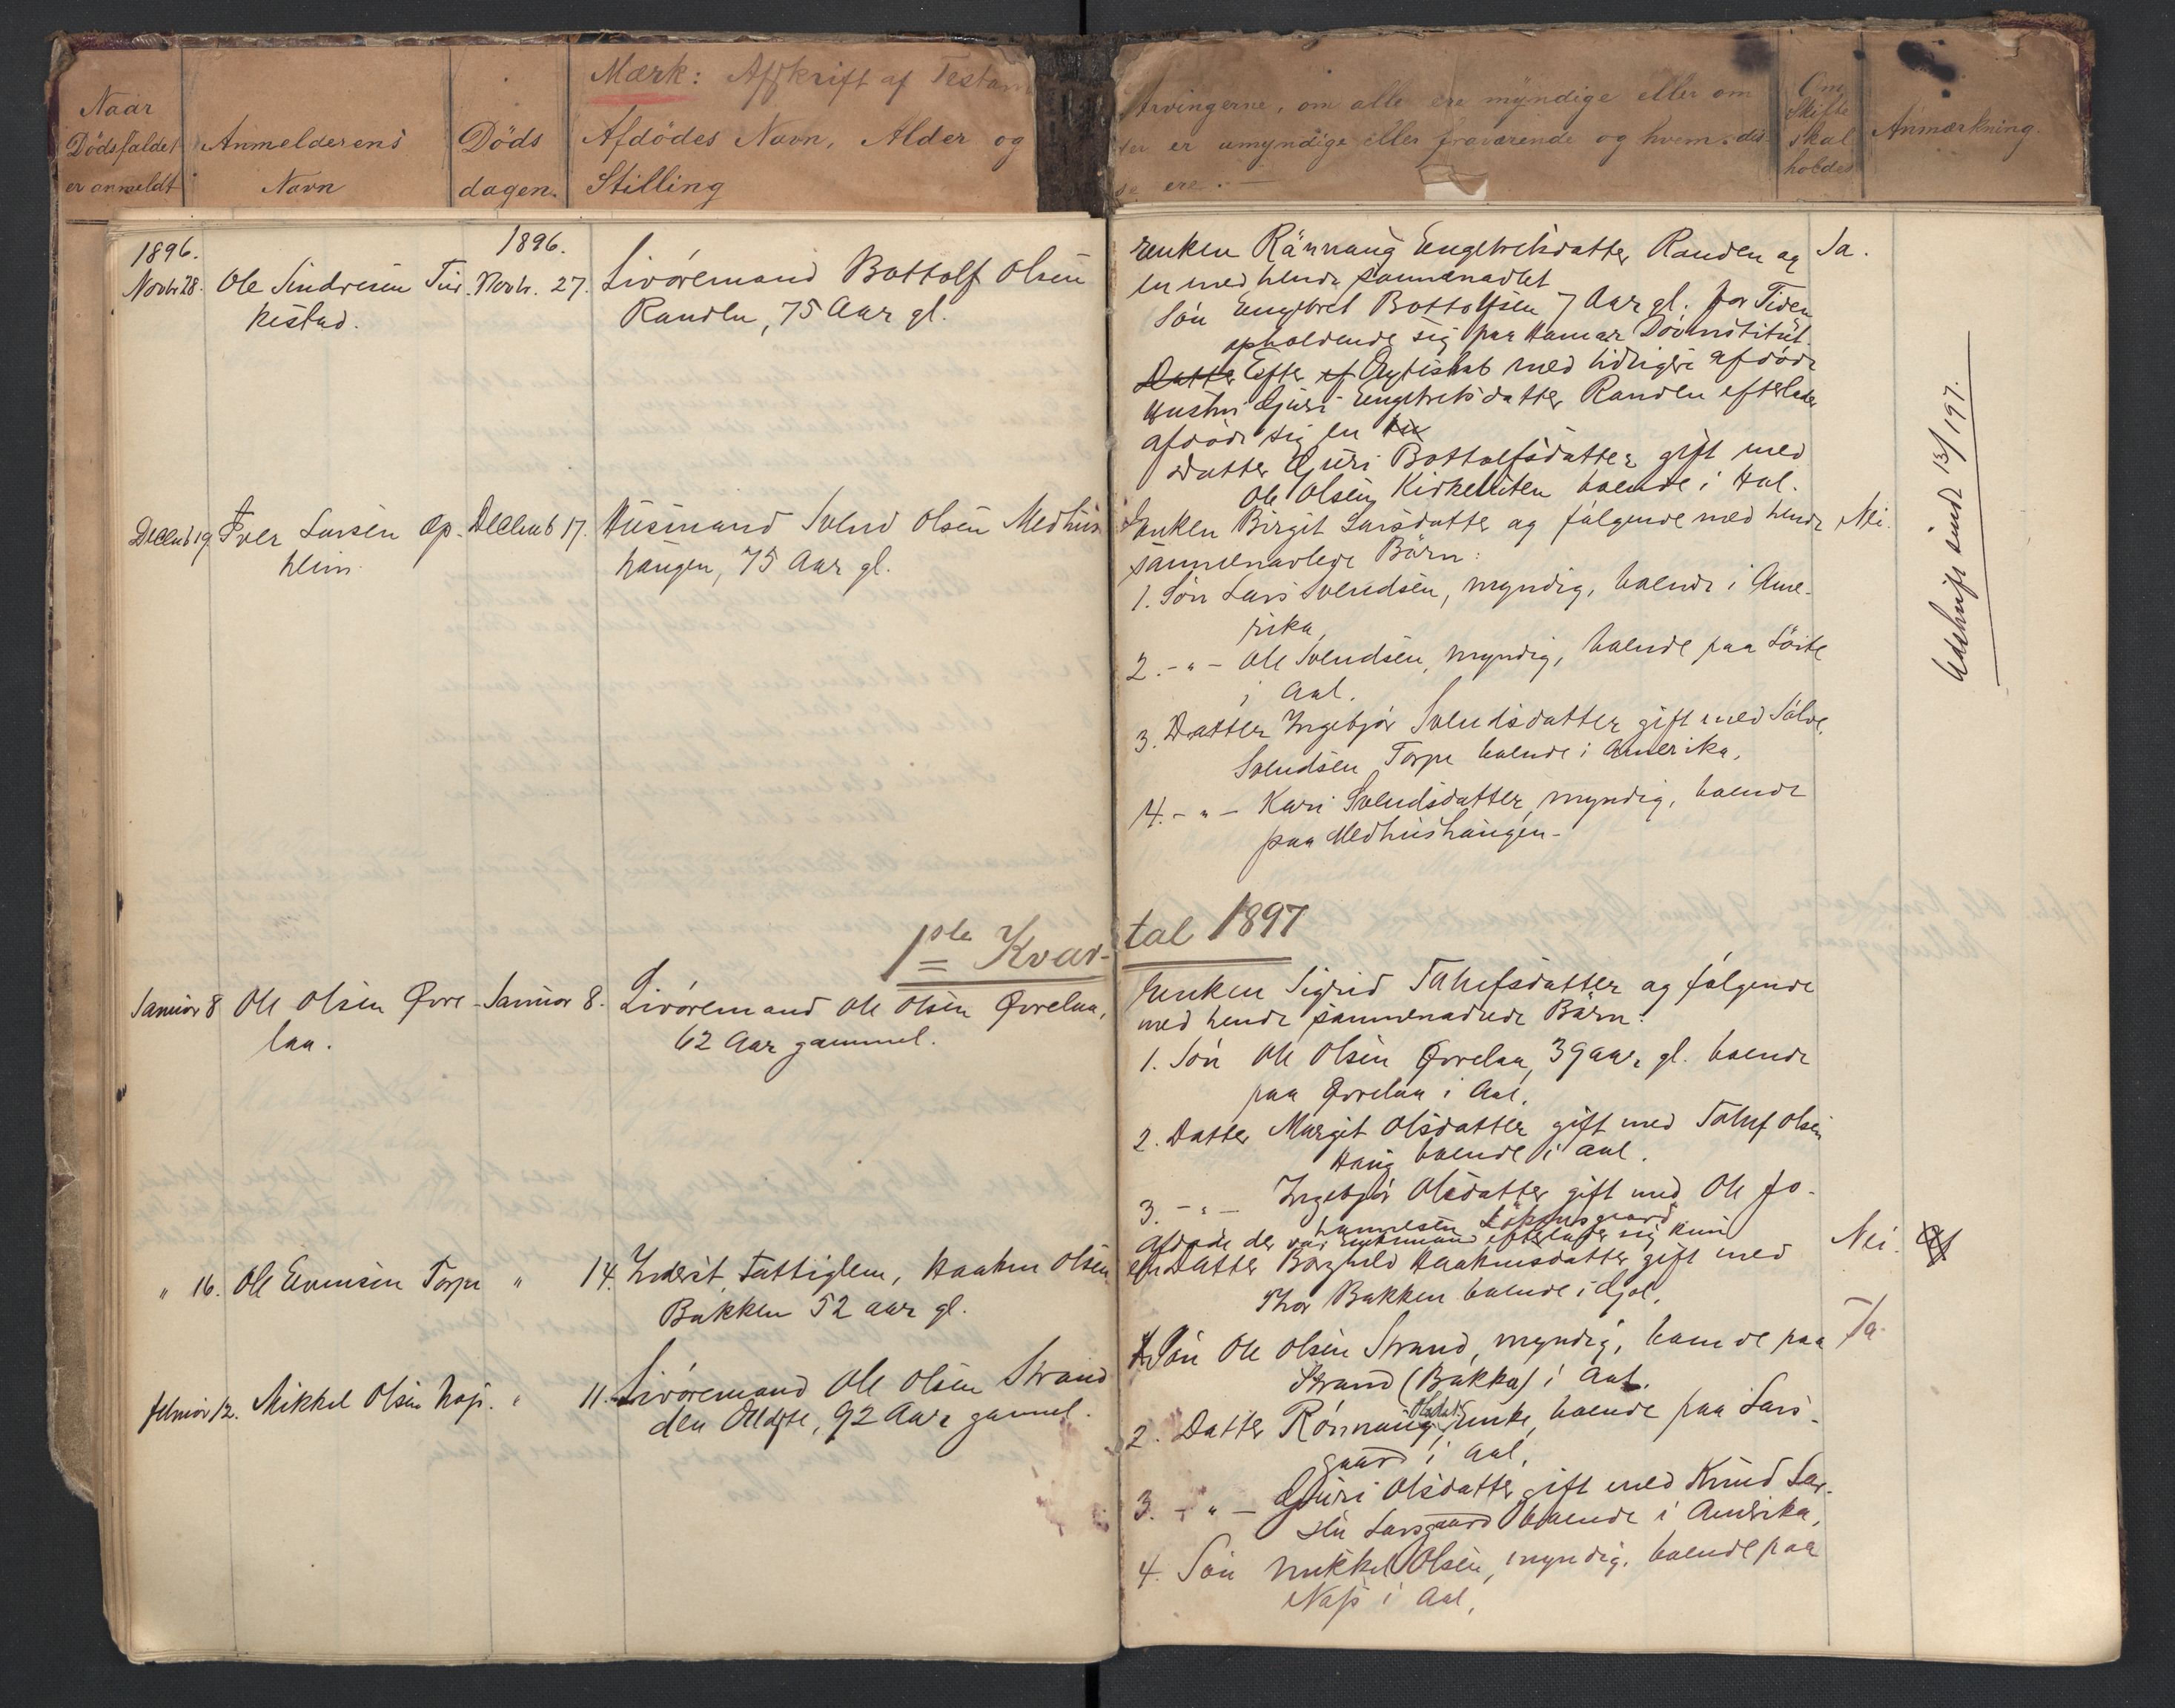 Mærk: Afskrift af Testam
Naar
Dödsfaldet
er anmeldt
Anmelderens
Navn
Döds
dagen.
Afdödes Navn, Alder og
Stilling
Arvingerne, om alle ere myndige eller om
er umyndige eller fraværende og hvem dis-
se ere.
Om
Skifte
skal
holdes
Anmærkning.
1896.
1896.
Novb 28. Ole Sindresen Tur- Novb. 27. Livöremand Bottolf Olsen
kestad. Randen, 75 Aar gl.
Enken Rännaug Engebretsdatter Randen og Ja.
en med hende sammenavlet
Sön Engebret Bottolfsen 7 Aar gl. for Tiden
opholdende sig paa Hamar Dövinstitut.
Datter Efter Ægteskab med tidligere afdöde
Hustru Guri Engebretsdatter Randen efterlader
afdöde sig en
Datter Guri Bottolfsdatter gift med
Ole Olsen Kirkeliten boende i Hol.
Udskrift sendt 13/1 97.
Decemb 19. Iver Larsen Op- Decemb 17. Husmand Svend Olsen Medhus-
heim. haugen, 75 Aar gl.
Enken Birgit Larsdatter og fölgende med hende Nei.
sammenavlede Börn:
1. Sön Lars Svendsen, myndig, boende i Ame-
rika,
2. -"- Ole Svendsen, myndig, boende paa
i Aal.
3. Datter Ingebjör Svendsdatter gift med
Svendsen Torpe boende i Amerika,
4. -"- Kari Svendsdatter, myndig, boende
paa Medhushaugen-
1ste Kvar-
tal 1897
Januar 8 Ole Olsen Øvre- Januar 8. Livöremand Ole Olsen Øvrelaa,
laa. 62 Aar gammel.
Enken Sigrid Tolefsdatter og fölgende
med hende sammenavlede Börn:
1. Sön Ole Olsen Øvrelaa, 39 aar gl. boende
paa Øvrelaa i Aal.
2. Datter Margit Olsdatter gift med Tolef Olsen
Haug boende i Aal.
3. -"- Ingebjör Olsdatter gift med Ole Jo-
hannesen
" 16. Ole Evensen Torpe " 14. Inderst Fattiglem, Haaken Olsen
Bakken 52 aar gl.
Afdöde der var enkemand efterlader sig kun
en Datter Borghild Haakensdatter gift med Nei.
Thor Bakken boende i Gol.
Februar 12. Mikkel Olsen Næs. " 11. Livöremand Ole Olsen Strand
den Ældste, 92 Aar gammel.
1. Sön Ole Olsen Strand, myndig, boende paa Ja.
Strand (Bakka) i Aal.
2. Datter Rönnaug Olsdatr. enke, boende paa Lars-
gaard i Aal,
3. -"- Guri Olsdatter gift med Knud Lar-
sen Larsgaard boende i Amerika,
4. Sön Mikkel Olsen, myndig, boende paa
Næs i Aal,